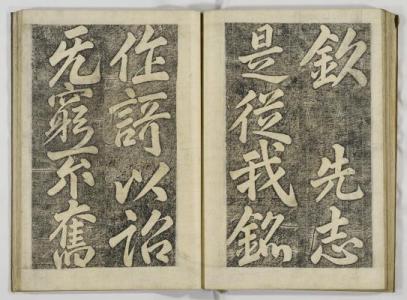 欽 先志
是從我銘
作詩以詔
无窮不奮